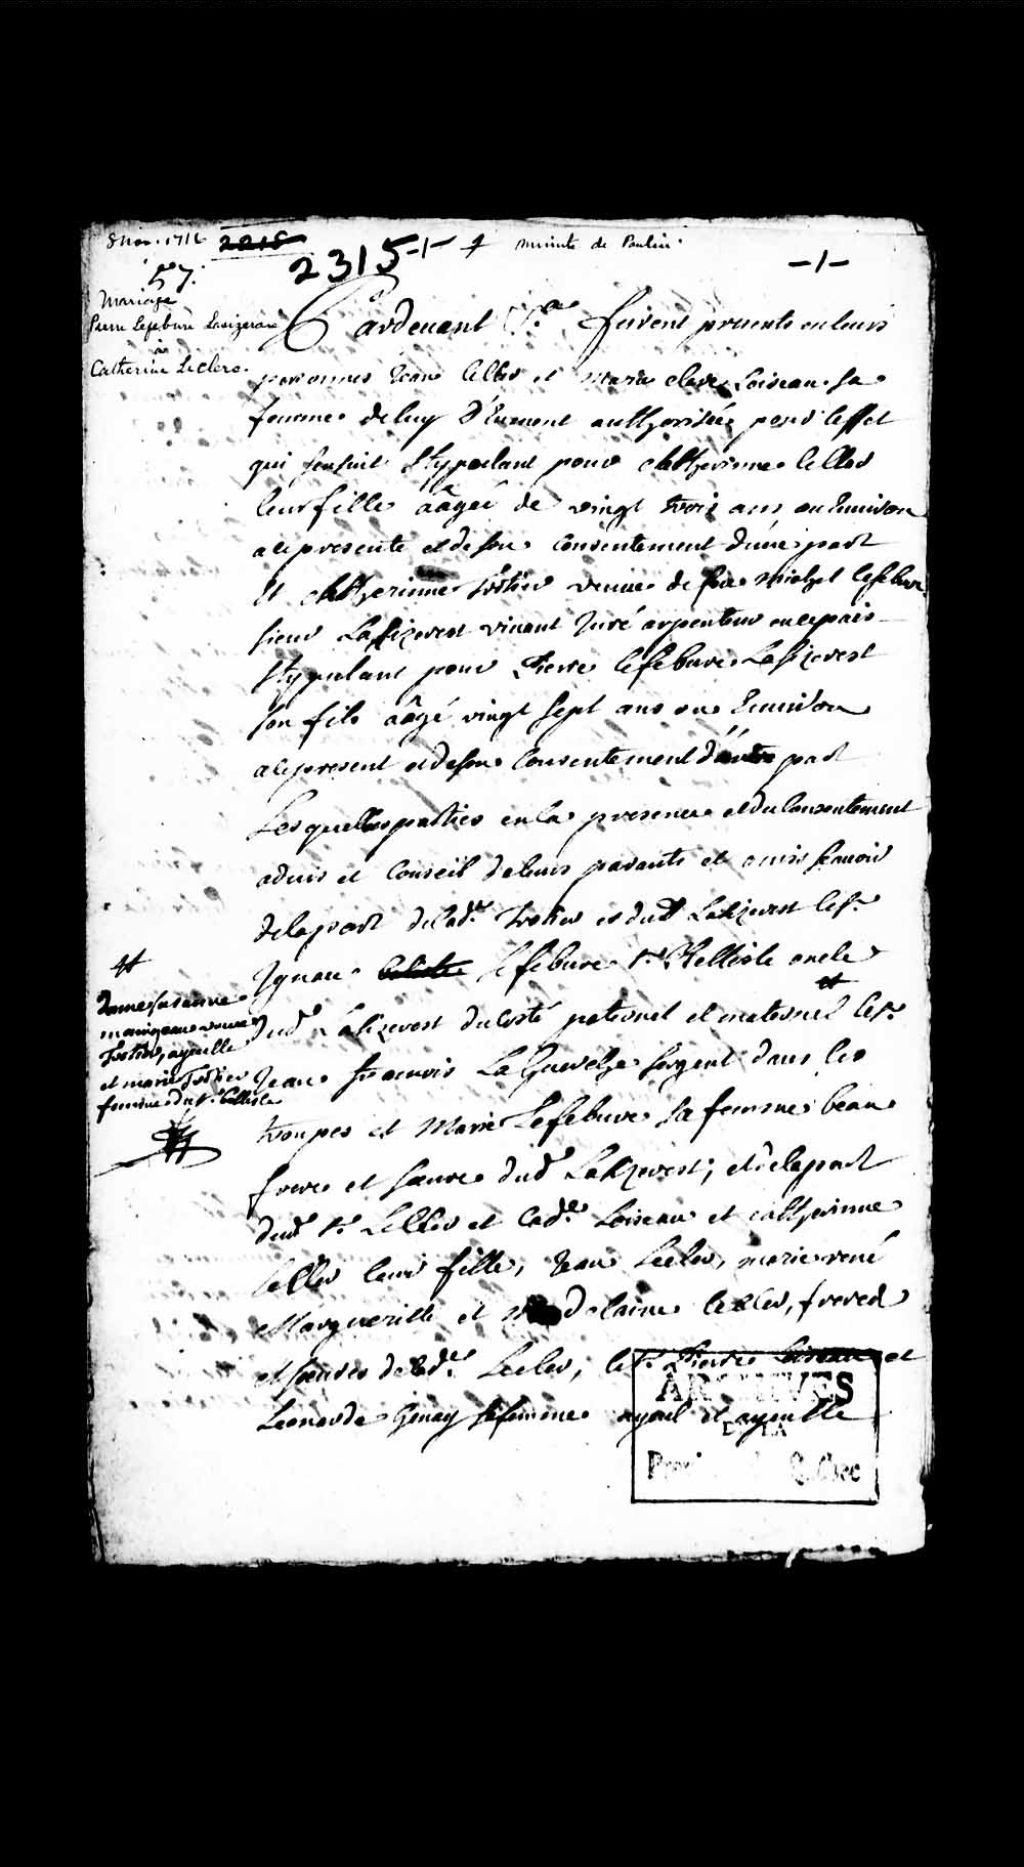 8 Nov. 1716 2215
2315 -1- minute de Poulin.
-1-
57.
Mariage
Pierre Lefebvre Laciserane
à
Catherine Leclerc.
Pardevant &a furent presents en leurs
personnes Jean Lecler et Marie clere Loiseau sa
femme de luy d'Eument authorisée pour l'effet
qui sensuit stypulant pour Catherinne Lecler
leur fille aâgée de vingt trois ans ou Environ
a ce presente et de son consentement d'une part
Et Catherinne Trotier veuve de feu Michel Lefebvre
sieur Lasizerest vivant Juré arpenteur en ce pais
stypulant pour Pierre Lefebure Lasizerest
son fils aâgé vingt sept ans ou Environ
a ce present et de son Consentement d'autre part
Lesquelles parties en la presence et du Consentement
advis et Conseil de leurs parants et amis scavoir
de la part de lad.e Trotier et dud Lasizerest le sr.
Ignace Lefebure sr. Bellisle oncle
dud Lasizerest du Costé paternel et maternel et le sr.
Jean francois sergent dans les
troupes et Marie Lefebure sa femme beau
frere et soeure dud Lasizerest; et de la part
dud sr. Lecler et lad.e Loiseau et catherinne
Lecler leur fille, Jean Lecler, marie rené
Margueritte et Madelaine Lecler, freres
et soeures de lad.e Lecler, le sr. Pierre Loiseau et
Leonarde Genay sa femme ayeul et ayeulle
dame susanne
veuve
Trotier, ayeulle
et marie Trotier
femme du sr. Bellisle
ARCHIVES
DE LA
Province Québec